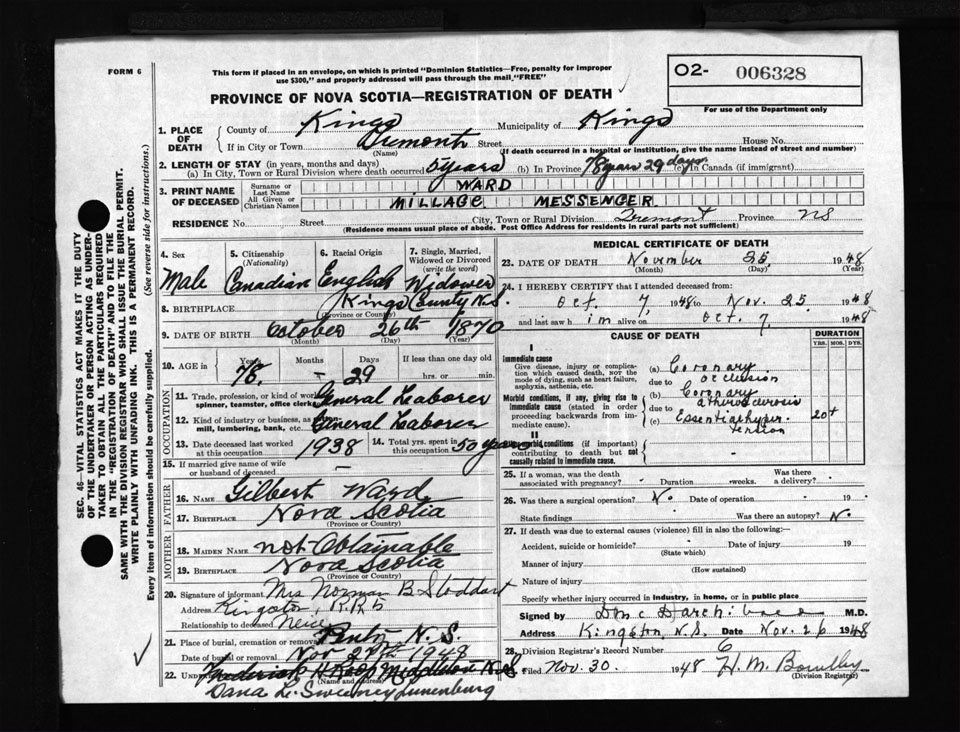 FORM 6
This form if placed in an envelope, on which is printed "Dominion Statistics—Free, penalty for improper
use $300," and properly addressed will pass through the mail, "FREE"
O2- 006328
PROVINCE OF NOVA SCOTIA—REGISTRATION OF DEATH
For use of the Department only
1. PLACE OF DEATH
County of Kings Municipality of Kings
If in City or Town Tremont Street House No.
(Name) (If death occurred in a hospital or institution, give the name instead of street and number)
2. LENGTH OF STAY (in years, months and days)
(a) In City, Town or Rural Division where death occurred 5 years (b) In Province 78 years 29 days (c) In Canada (if immigrant)
3. PRINT NAME OF DECEASED
Surname or Last Name WARD
All Given or Christian Names MILLAGE MESSENGER
RESIDENCE No. Street City, Town or Rural Division Tremont Province NS
(Residence means usual place of abode. Post Office Address for residents in rural parts not sufficient)
4. Sex Male
5. Citizenship (Nationality) Canadian
6. Racial Origin English
7. Single, Married, Widowed or Divorced (write the word) Widower
8. BIRTHPLACE Kings County N.S.
(Province or Country)
9. DATE OF BIRTH October 26th 1870
(Month) (Day) (Year)
10. AGE in Years Months Days If less than one day old
78. - 29 hrs. or min.
OCCUPATION
11. Trade, profession, or kind of work as spinner, teamster, office clerk General Laborer
12. Kind of industry or business, as mill, lumbering, bank, etc. General Laborer
13. Date deceased last worked at this occupation 1938
14. Total yrs. spent in this occupation 50 years
15. If married give name of wife or husband of deceased —
FATHER
16. NAME Gilbert Ward
17. BIRTHPLACE Nova Scotia
(Province or Country)
MOTHER
18. MAIDEN NAME not Obtainable
19. BIRTHPLACE Nova Scotia
(Province or Country)
20. Signature of informant Mrs Norman B Stoddart
Address Kingston, R.R.
Relationship to deceased Neice
21. Place of burial, cremation or removal N.S.
Date of burial or removal Nov 27th 1948
22. UNDERTAKER Frederick H Roop Middleton N.S
(Name and Address)
Dana L. Sweeney Lunenburg
MEDICAL CERTIFICATE OF DEATH
23. DATE OF DEATH November 25, 1948
(Month) (Day) (Year)
24. I HEREBY CERTIFY that I attended deceased from
Oct. 7, 1948 to Nov. 25 1948
and last saw him alive on Oct. 7, 1948
CAUSE OF DEATH
DURATION
YRS. MOS. DYS.
I
Immediate cause
Give disease, injury or complication which caused death, NOT the mode of dying, such as heart failure, asphyxia, asthenia, etc.
(a) Coronary occlusion
due to
Morbid conditions, if any, giving rise to immediate cause (stated in order proceeding backwards from immediate cause).
(b) Coronary atherosclerosis
due to
(c) Essential hypertension 20+
II
Other morbid conditions (if important) contributing to death but not causally related to immediate cause.
25. If a woman, was the death associated with pregnancy? Duration weeks. Was there a delivery?
26. Was there a surgical operation? No Date of operation 19
State findings Was there an autopsy? No
27. If death was due to external causes (violence) fill in also the following:—
Accident, suicide or homicide? Date of injury 19
(State which)
Manner of injury
(How sustained)
Nature of injury
Specify whether injury occurred in industry, in home, or in public place
Signed by M.D.
Address Kingston, N.S. Date Nov. 26 1948
28. Division Registrar's Record Number 6
Filed Nov. 30. 1948 H. M. Bowlby
(Division Registrar)
SEC. 46—VITAL STATISTICS ACT MAKES IT THE DUTY
OF THE UNDERTAKER OR PERSON ACTING AS UNDER-
TAKER TO OBTAIN ALL THE PARTICULARS REQUIRED
IN THE "REGISTRATION OF DEATH" AND TO FILE THE
SAME WITH THE DIVISION REGISTRAR WHO SHALL ISSUE THE BURIAL PERMIT.
WRITE PLAINLY WITH UNFADING INK. THIS IS A PERMANENT RECORD.
Every item of information should be carefully supplied. (See reverse side for instructions.)